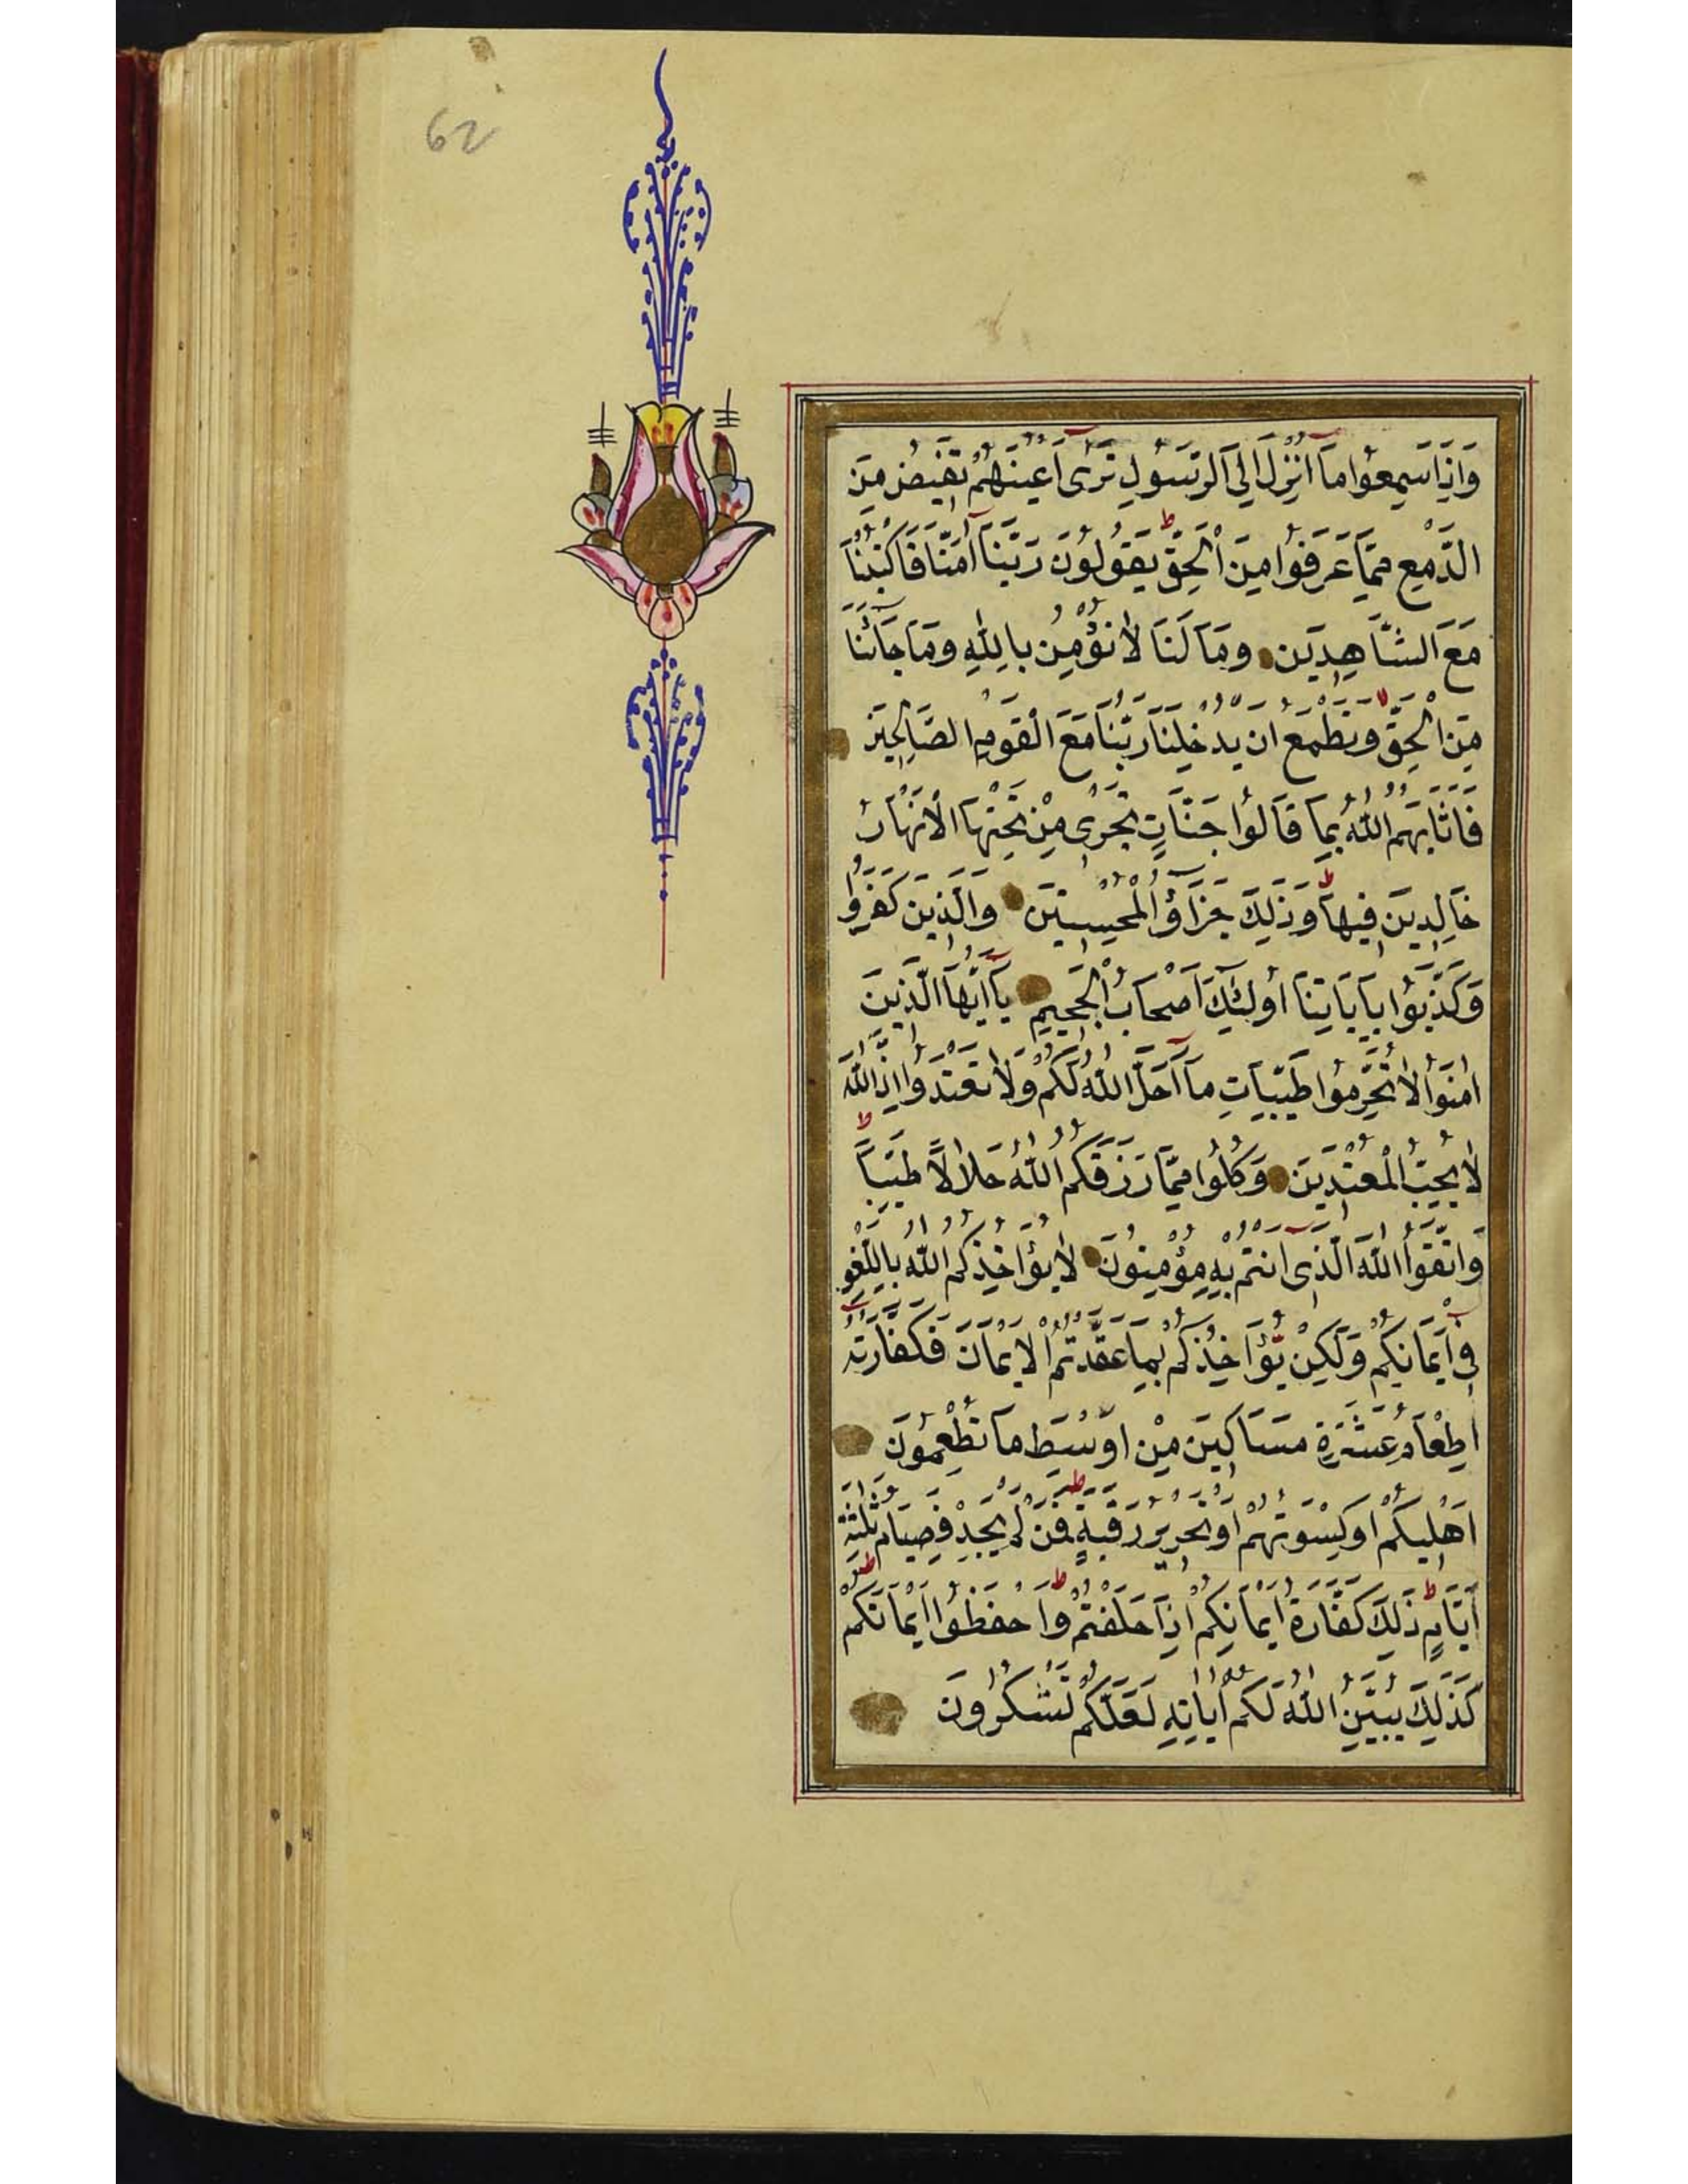 62
وَاِذَا سَمِعُوا مَٓا اُنْزِلَ اِلَى الرَّسُولِ تَرٰٓى اَعْيُنَهُمْ تَفٖيضُ مِنَ
الدَّمْعِ مِمَّا عَرَفُوا مِنَ الْحَقِّ ط يَقُولُونَ رَبَّنَٓا اٰمَنَّا فَاكْتُبْنَا
مَعَ الشَّاهِدٖينَ وَمَا لَنَا لَا نُؤْمِنُ بِاللّٰهِ وَمَا جَٓائَنَا
مِنَ الْحَقِّ لا وَنَطْمَعُ اَنْ يُدْخِلَنَا رَبُّنَا مَعَ الْقَوْمِ الصَّالِحٖينَ
فَاَثَابَهُمُ اللّٰهُ بِمَا قَالُوا جَنَّاتٍ تَجْرٖى مِنْ تَحْتِهَا الْاَنْهَارُ
خَالِدٖينَ فٖيهَا ط وَذٰلِكَ جَزَٓاؤُ الْمُحْسِنٖينَ وَالَّذٖينَ كَفَرُوا
وَكَذَّبُوا بِاٰيَاتِنَا اُولٰٓئِكَ اَصْحَابُ الْجَحٖيمِ يَٓا اَيُّهَا الَّذٖينَ
اٰمَنُوا لَا تُحَرِّمُوا طَيِّبَاتِ مَٓا اَحَلَّ اللّٰهُ لَكُمْ وَلَا تَعْتَدُوا ط اِنَّ اللّٰهَ
لَا يُحِبُّ الْمُعْتَدٖينَ وَكُلُوا مِمَّا رَزَقَكُمُ اللّٰهُ حَلَالًا طَيِّبًا
وَاتَّقُوا اللّٰهَ الَّذٖٓى اَنْتُمْ بِهٖ مُؤْمِنُونَ لَا يُؤَاخِذُكُمُ اللّٰهُ بِاللَّغْوِ
فٖٓى اَيْمَانِكُمْ وَلٰكِنْ يُؤَاخِذُكُمْ بِمَا عَقَّدْتُمُ الْاَيْمَانَ فَكَفَّارَتُهُٓ
اِطْعَامُ عَشَرَةِ مَسَاكٖينَ مِنْ اَوْسَطِ مَا تُطْعِمُونَ
اَهْلٖيكُمْ اَوْ كِسْوَتُهُمْ اَوْ تَحْرٖيرُ رَقَبَةٍ ط فَمَنْ لَمْ يَجِدْ فَصِيَامُ ثَلٰثَةِ
اَيَّامٍ ط ذٰلِكَ كَفَّارَةُ اَيْمَانِكُمْ اِذَا حَلَفْتُمْ ط وَاحْفَظُوا اَيْمَانَكُمْ ط
كَذٰلِكَ يُبَيِّنُ اللّٰهُ لَكُمْ اٰيَاتِهٖ لَعَلَّكُمْ تَشْكُرُونَ